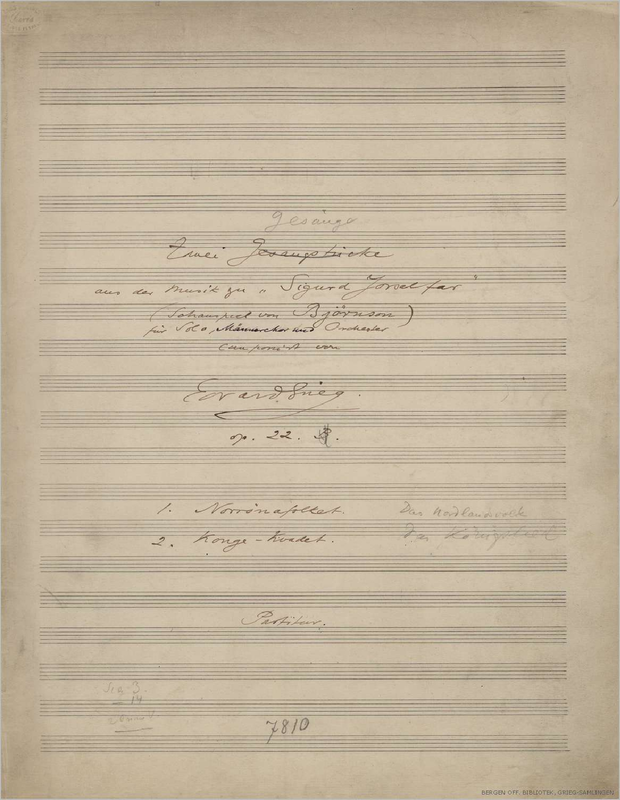 Gesänge
Zwei Gesangstücke
aus der Musik zu „Sigurd Jorsalfar"
(Schauspiel von Björnson)
für Solo, Männerchor und Orchester
componirt von
Edvard Grieg.
op. 22.
1. Norrønafolket. Das Nordlandvolk
2. Konge-Kvadet. Das Königslied
Partitur.
7810
BERGEN OFF. BIBLIOTEK, GRIEG-SAMLINGEN